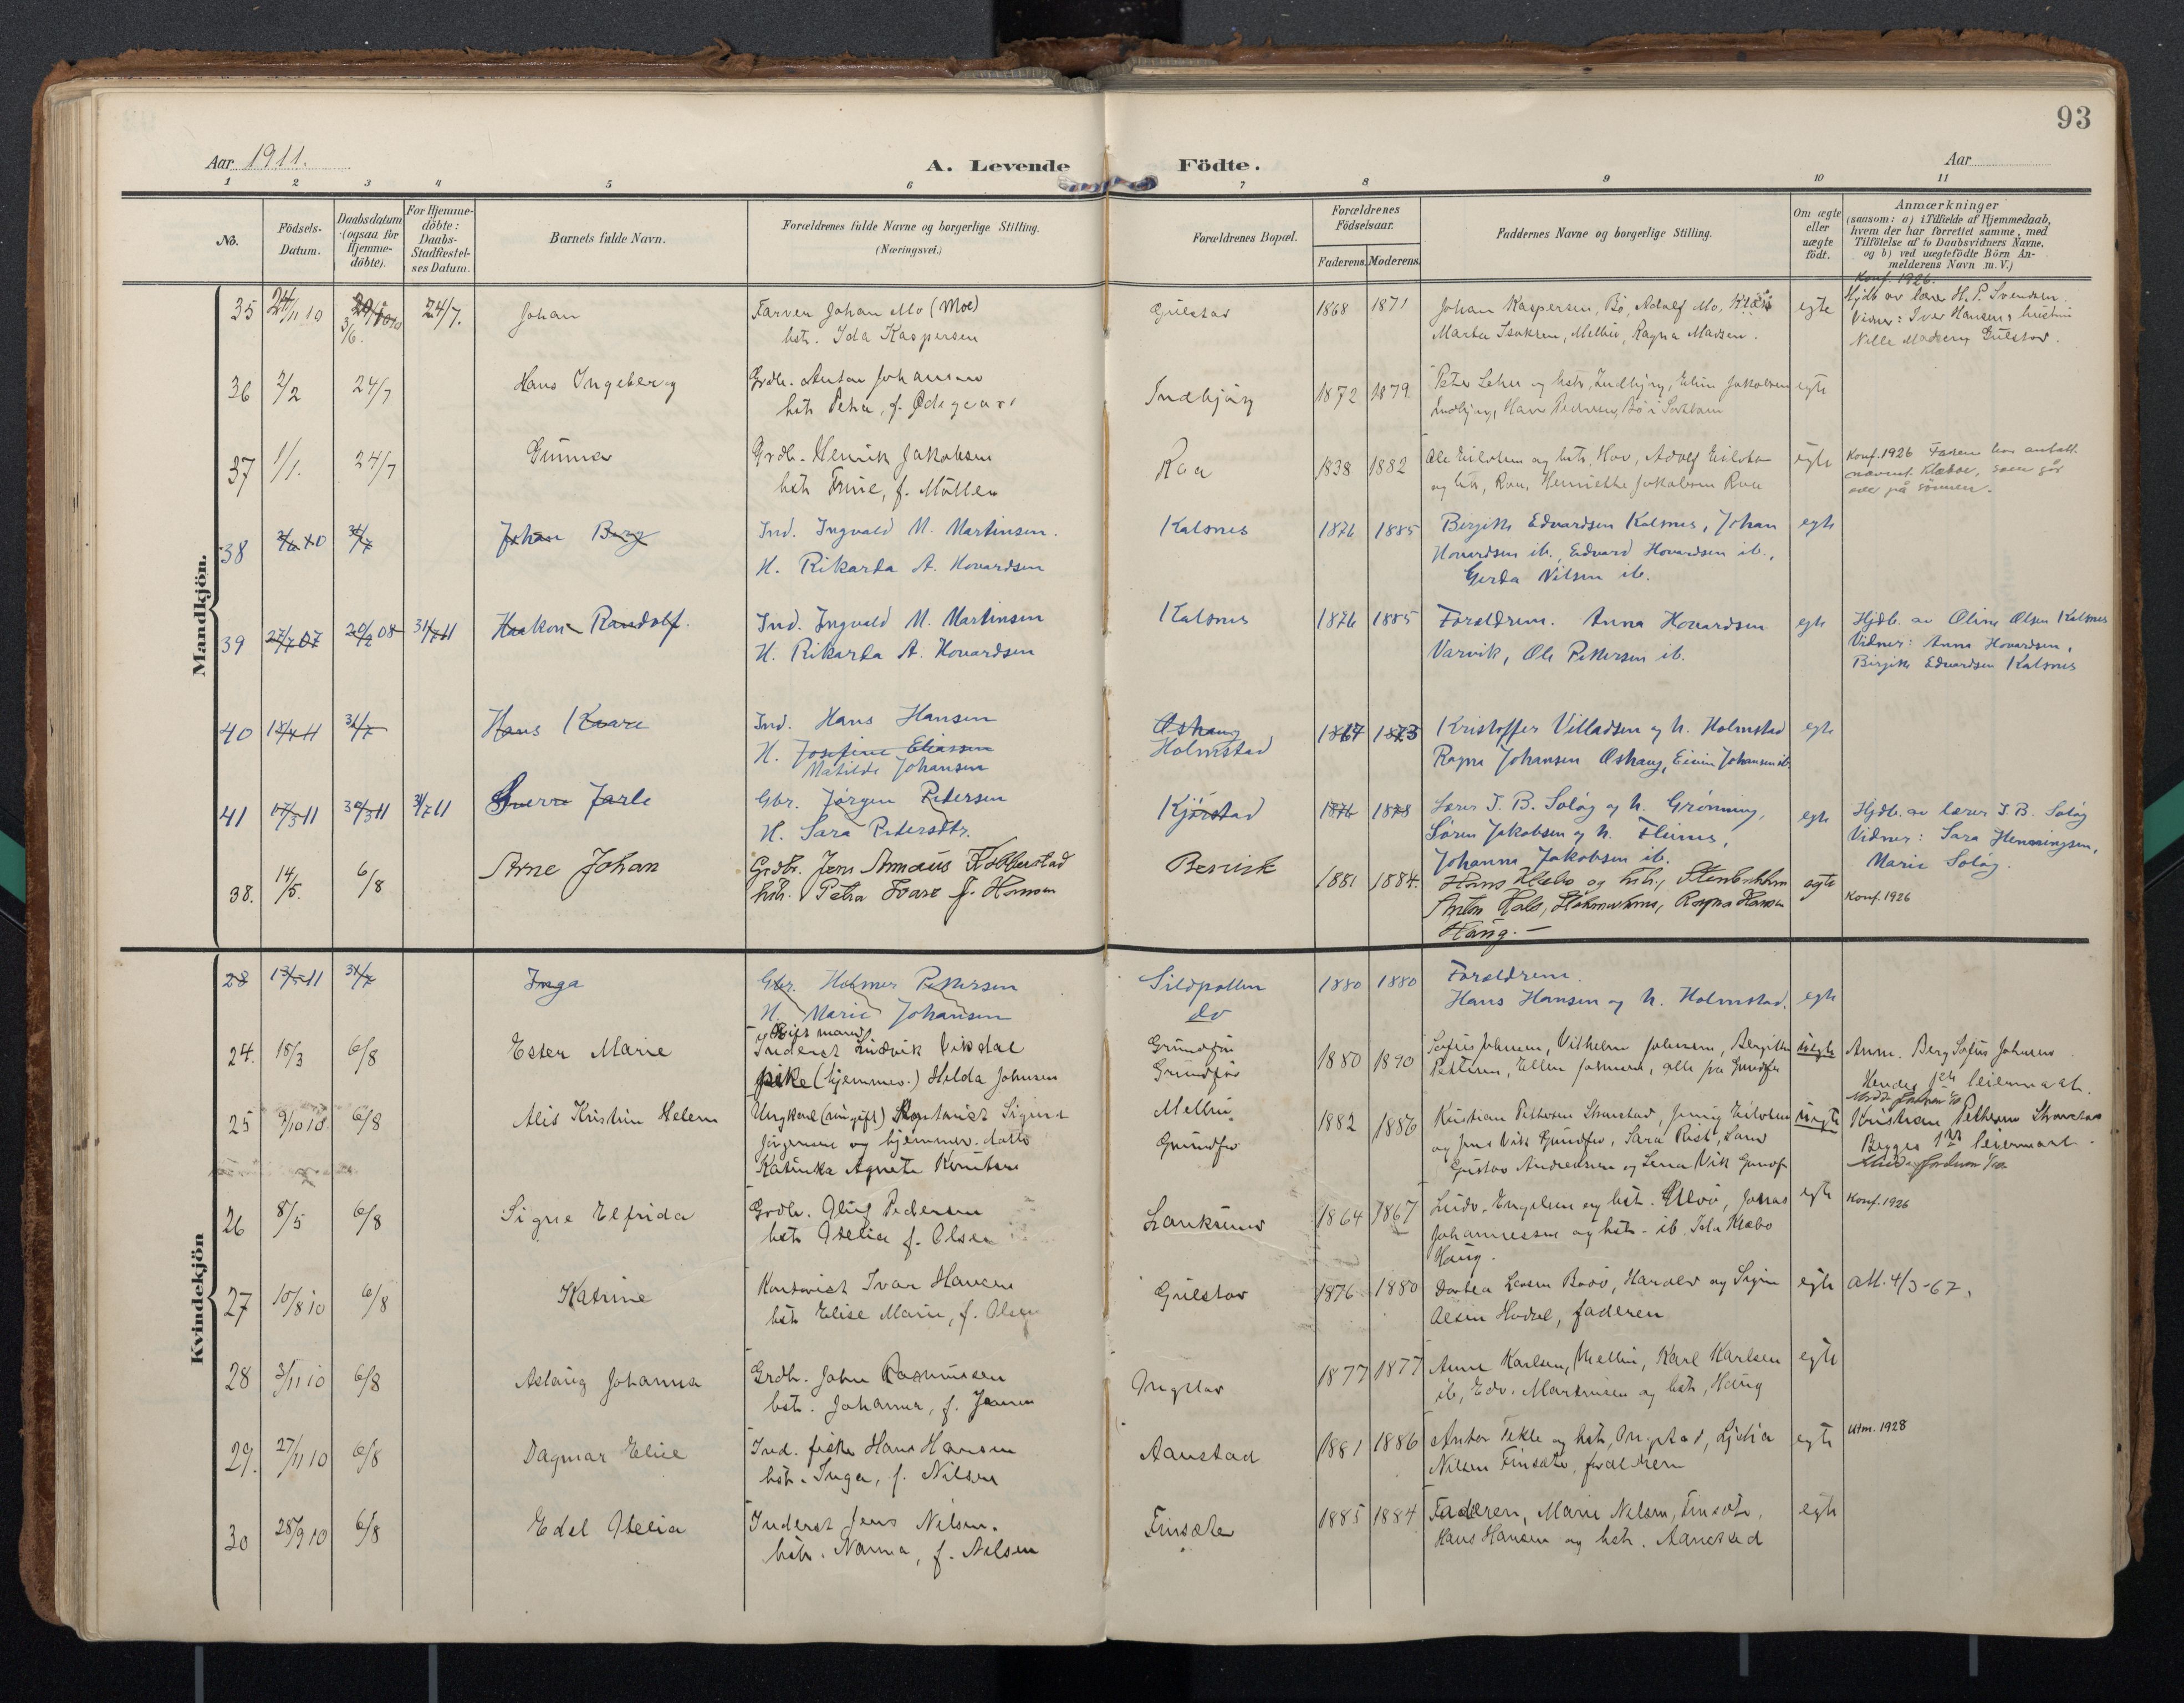 93
Aar 1911.
A. Levende Födte.
Aar
1 2 3 4 5 6 7 8 9 10 11
No.
Födsels-
Datum.
Daabsdatum
(ogsaa for
Hjemme-
döbte).
For Hjemme-
döbte:
Daabs-
Stadfæstel-
ses Datum.
Barnets fulde Navn.
Forældrenes fulde Navne og borgerlige Stilling.
(Næringsvei.)
Forældrenes Bopæl.
Forældrenes
Födselsaar.
Faderens. Moderens.
Faddernes Navne og borgerlige Stilling.
Om ægte
eller
uægte
födt.
Anmærkninger
(saasom: a) i Tilfælde af Hjemmedaab,
hvem der har forrettet samme, med
Tilföielse af to Daabsvidners Navne,
og b) ved uægtefödte Börn An-
melderens Navn m. V.)
Mandkjön.
Konf. 1926.
35 24/11 10 3/6. 24/7. Johan
Farver Johan Mo (Moe)
hst. Ida Kaspersen
Gulstad 1868 1871
Johan Kaspersen, Bö, Adolf Mo,
Marta Isaksen, Melbu, Ragna Madsen.
egte
Hjdb av lærer H. P. Svendsen.
Vidner: Iver Hansens hustru
Nille Madsen, Gulstad.
36 2/2 24/7 Hans Ingeberg
Grdb. Anton Johansen
hst. Petra, f. Ødegaard
Indbjörg 1872 1879
egte
37 1/1. 24/7 Gunnar
Grdb. Henrik Jakobsen
hst. Trine, f. Möller
Roa 1838 1882
Ole Eilertsen og hst., Hov, Adolf Eilertsen
og hst., Roa, Henriette Jakobsen Roa
egte
Konf. 1926 Faren har antatt
navnet Klæboe, som går
over på sønnen.
38 31/7 Johan Berg
Ind. Ingvald M. Martinsen.
H. Rikarda A. Hovardsen
Kalsnes 1876 1885
Birgitte Edvardsen Kalsnes, Johan
Hovardsen ib., Edvard Hovardsen ib.,
Gerda Nilsen ib.
egte
39 27/7 07 20/2 08 31/7 11 Haakon Randolf.
Ind. Ingvald M. Martinsen
H. Rikarda A. Hovardsen
Kalsnes 1876 1885
Forældrene. Anna Hovardsen
Varvik, Ole Pettersen ib.
egte
Hjdb. av Oline Olsen Kalsnes
Vidner: Anna Hovardsen,
Birgitte Edvardsen Kalsnes
40 18/4 11 31/7 Hans Kaare
Ind. Hans Hansen
H. Josefine Eliassen
Matilde Johansen
Oshaug
Holmstad
1867 1873
Kristoffer Villadsen og h. Holmstad
Ragna Johansen Oshaug, Einin Johansen ib.
egte
41 17/3 11 30/3 11 31/7 11 Sverre Jarle
Gbr. Jørgen Petersen
H. Sara Petersdtr.
Kjørstad 1876 1878
Lærer I. B. Soløy og h. Grønning,
Søren Jakobsen og h. Flines,
Johanna Jakobsen ib.
egte
Hjdb. av lærer I. B. Soløy
Vidner: Sara Henningsen,
Marie Soløy.
38. 14/5. 6/8 Arne Johan
Grdbr. Jens Amdeus Kobberstad
hst. Petra Tvare f. Hansen
Besvik 1881 1884.
Hans Klæbo og hst.,
Haug. —
egte
Konf. 1926
Kvindekjön
28 13/5 11 31/7 Inga
Gbr. Holmer Pettersen
H. Marie Johansen
Sildpollen
do
1880 1880
Forældrene.
Hans Hansen og h. Holmstad.
egte
24. 18/3 6/8 Ester Marie
Inderst Ludvik Vikdal
pike (hjemmev.) Hilda Johnsen
Grundfør
Grundfør
1880 1890
Sofus Johnsen, Vilhelm Johnsen, Bergitte
Pettersen, Ellen Johnsen, alle fra Grundfør
uegte
Anm. Berg Sofus Johnsen
Hendes 1ste leiermaal.
25 9/10 10 6/8 Alis Kristine Helene
Ungkarl (ungift) Kontorist Sigurd
Jörgensen og hjemmev. datter
Katinka Agnete Kornitsen
Melbu
Grundfør
1882 1886
Kristian Pettersen Skarstad, Jenny Eilertsen
og Jens Vik Grundfør, Sara Rist, Sand
Gustav Andreassen og Lena Vik Grundf
uegte
Kristian Pettersen Skarstad
Begges 1ste leiermaal.
26 8/5 6/8 Signe Elfrida
Grdb. Oluf Pedersen
hst. Otelia f. Olsen
Lanksund 1864 1867
Ludv. Engelsen og hst. Ulvö, Jonas
Johannessen og hst. ib, Ida Klæbo
Haug.
egte
Konf. 1926
27 10/8 10 6/8 Katrine
Kondorist Ivar Hansen
hst. Elise Marie, f. Olsen
Gulstad 1876 1880
Dorthea Larsen Bodö, Harald og Signe
Olsen Hadsel, faderen
egte
Att. 4/3-67.
28 3/11 10 6/8 Aslaug Johanna
Grdb. John Rasmussen
hst. Johanna, f. Jensen
Ungstad 1877 1877
Anne Karlsen, Melbu, Karl Karlsen
ib, Edv. Martinsen og hst., Haug
egte
29. 27/11 10 6/8 Dagmar Elise
Ind. fisker Hans Hansen
hst. Inga, f. Nilsen
Aanstad 1881 1886
Anton Tekle og hst., Ungstad, Lydia
Nilsen Finsæter, forældrene
egte
Utm. 1928
30 28/9 10 6/8 Edel Otelia
Inderst Jens Nilsen.
hst. Nanna, f. Nilsen
Finsæter 1885 1884
Faderen, Marie Nilsen, Finsæter,
Hans Hansen og hst. Aanstad
egte